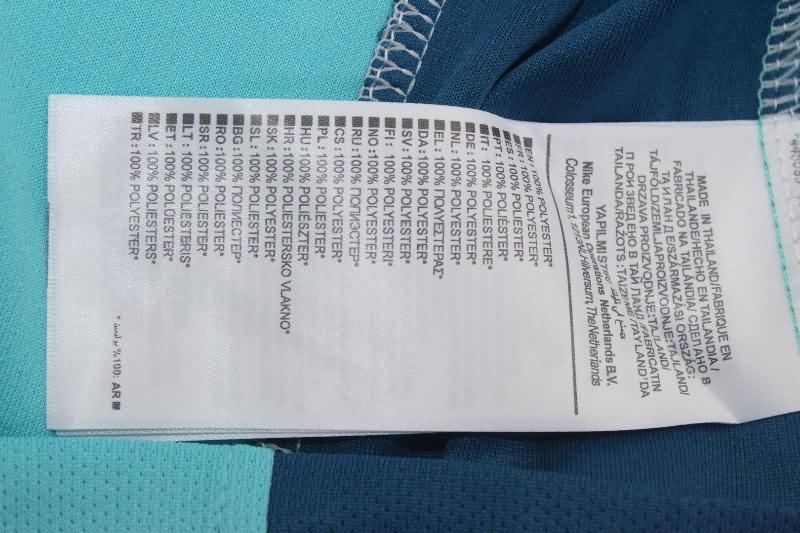 MADE IN THAILAND/FABRIQUE EN
THAILANDE/HECHO EN TAILANDIA /
FABRICADO NA TAILÂNDIA/ СДЕЛАНО В
ТАИЛАНДЕ/SZÁRMAZÁSI ORSZÁG:
TÁJFÖLD/ZEMLJA PROIZVODNJE:TAJLAND/
DRŽAVA PROIZVODNJE:TAJLAND/
ПРОИЗВЕДЕНО В ТАЙЛАНД/FABRICATIN
TAILANDA/RAŽOTS :TAIZEME/TAYLAND'DA
YAPILMIŞTIR/
Nike European Operations Netherlands B.V.
Colosseum1 1213NL Hilversum, The Netherlands
EN: 100% POLYESTER*
FR: 100% POLYESTER*
ES: 100% POLIESTER*
PT: 100% POLIÉSTER*
IT: 100% POLIESTERE*
DE: 100% POLYESTER*
NL: 100% POLYESTER*
EL: 100% ΠΟΛΥΕΣΤΕΡΑΣ*
DA: 100% POLYESTER*
SV: 100% POLYESTER*
FI: 100% POLYESTERI*
NO: 100% POLYESTER*
RU: 100% ПОЛИЭСТЕР*
CS: 100% POLYESTER*
PL: 100% POLIESTER*
HU: 100% POLIÉSZTER*
HR: 100% POLIESTERSKO VLAKNO*
SK: 100% POLYESTER*
SL: 100% POLIESTER*
BG: 100% ПОЛИЕСТЕР*
RO: 100% POLIESTER*
SR: 100% POLIESTER*
LT: 100% POLIESTERIS*
ET: 100% POLÜESTER*
LV: 100% POLIESTERS*
TR: 100% POLYESTER*
AR :100%